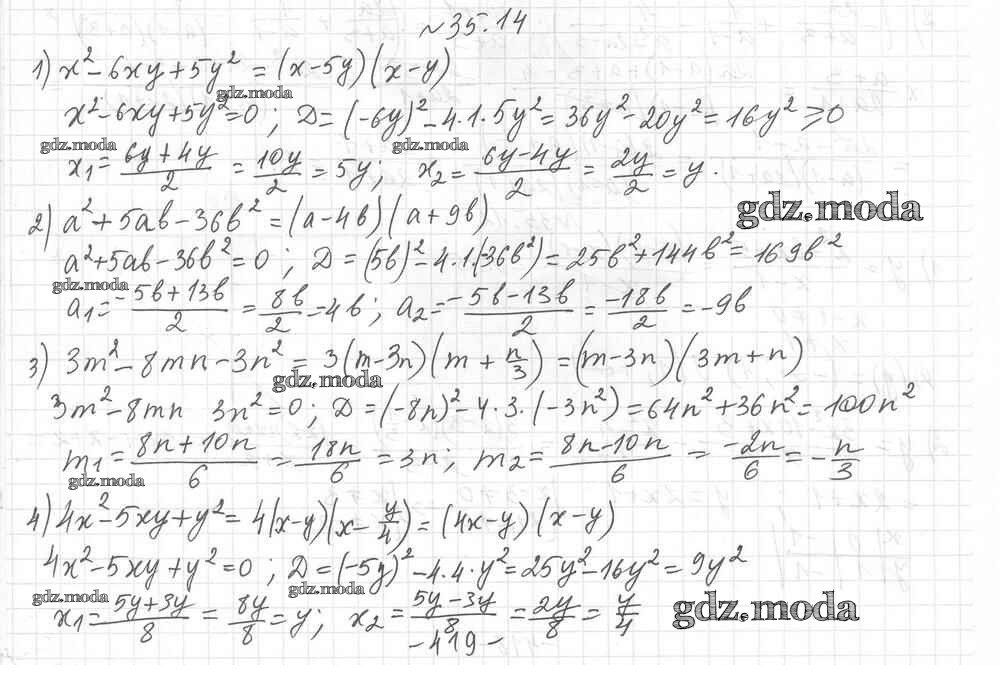 №35.14
1) x² - 6xy + 5y² = (x-5y)(x-y)
gdz.moda
x² - 6xy + 5y² = 0; D = (-6y)² - 4·1·5y² = 36y² - 20y² = 16y² ≥ 0
gdz.moda gdz.moda
x₁ = (6y+4y)/2 = 10y/2 = 5y; x₂ = (6y-4y)/2 = 2y/2 = y.
gdz.moda
2) a² + 5ab - 36b² = (a-4b)(a+9b)
a² + 5ab - 36b² = 0; D = (5b)² - 4·1·(-36b²) = 25b² + 144b² = 169b²
gdz.moda
a₁ = (-5b+13b)/2 = 8b/2 = 4b; a₂ = (-5b-13b)/2 = -18b/2 = -9b
3) 3m² - 8mn - 3n² = 3(m-3n)(m + n/3) = (m-3n)(3m+n)
gdz.moda
3m² - 8mn 3n² = 0; D = (-8n)² - 4·3·(-3n²) = 64n² + 36n² = 100n²
m₁ = (8n+10n)/6 = 18n/6 = 3n; m₂ = (8n-10n)/6 = -2n/6 = -n/3
gdz.moda
4) 4x² - 5xy + y² = 4(x-y)(x - y/4) = (4x-y)(x-y)
4x² - 5xy + y² = 0; D = (-5y)² - 4·4·y² = 25y² - 16y² = 9y²
gdz.moda gdz.moda
x₁ = (5y+3y)/8 = 8y/8 = y; x₂ = (5y-3y)/8 = 2y/8 = y/4
gdz.moda
-419-